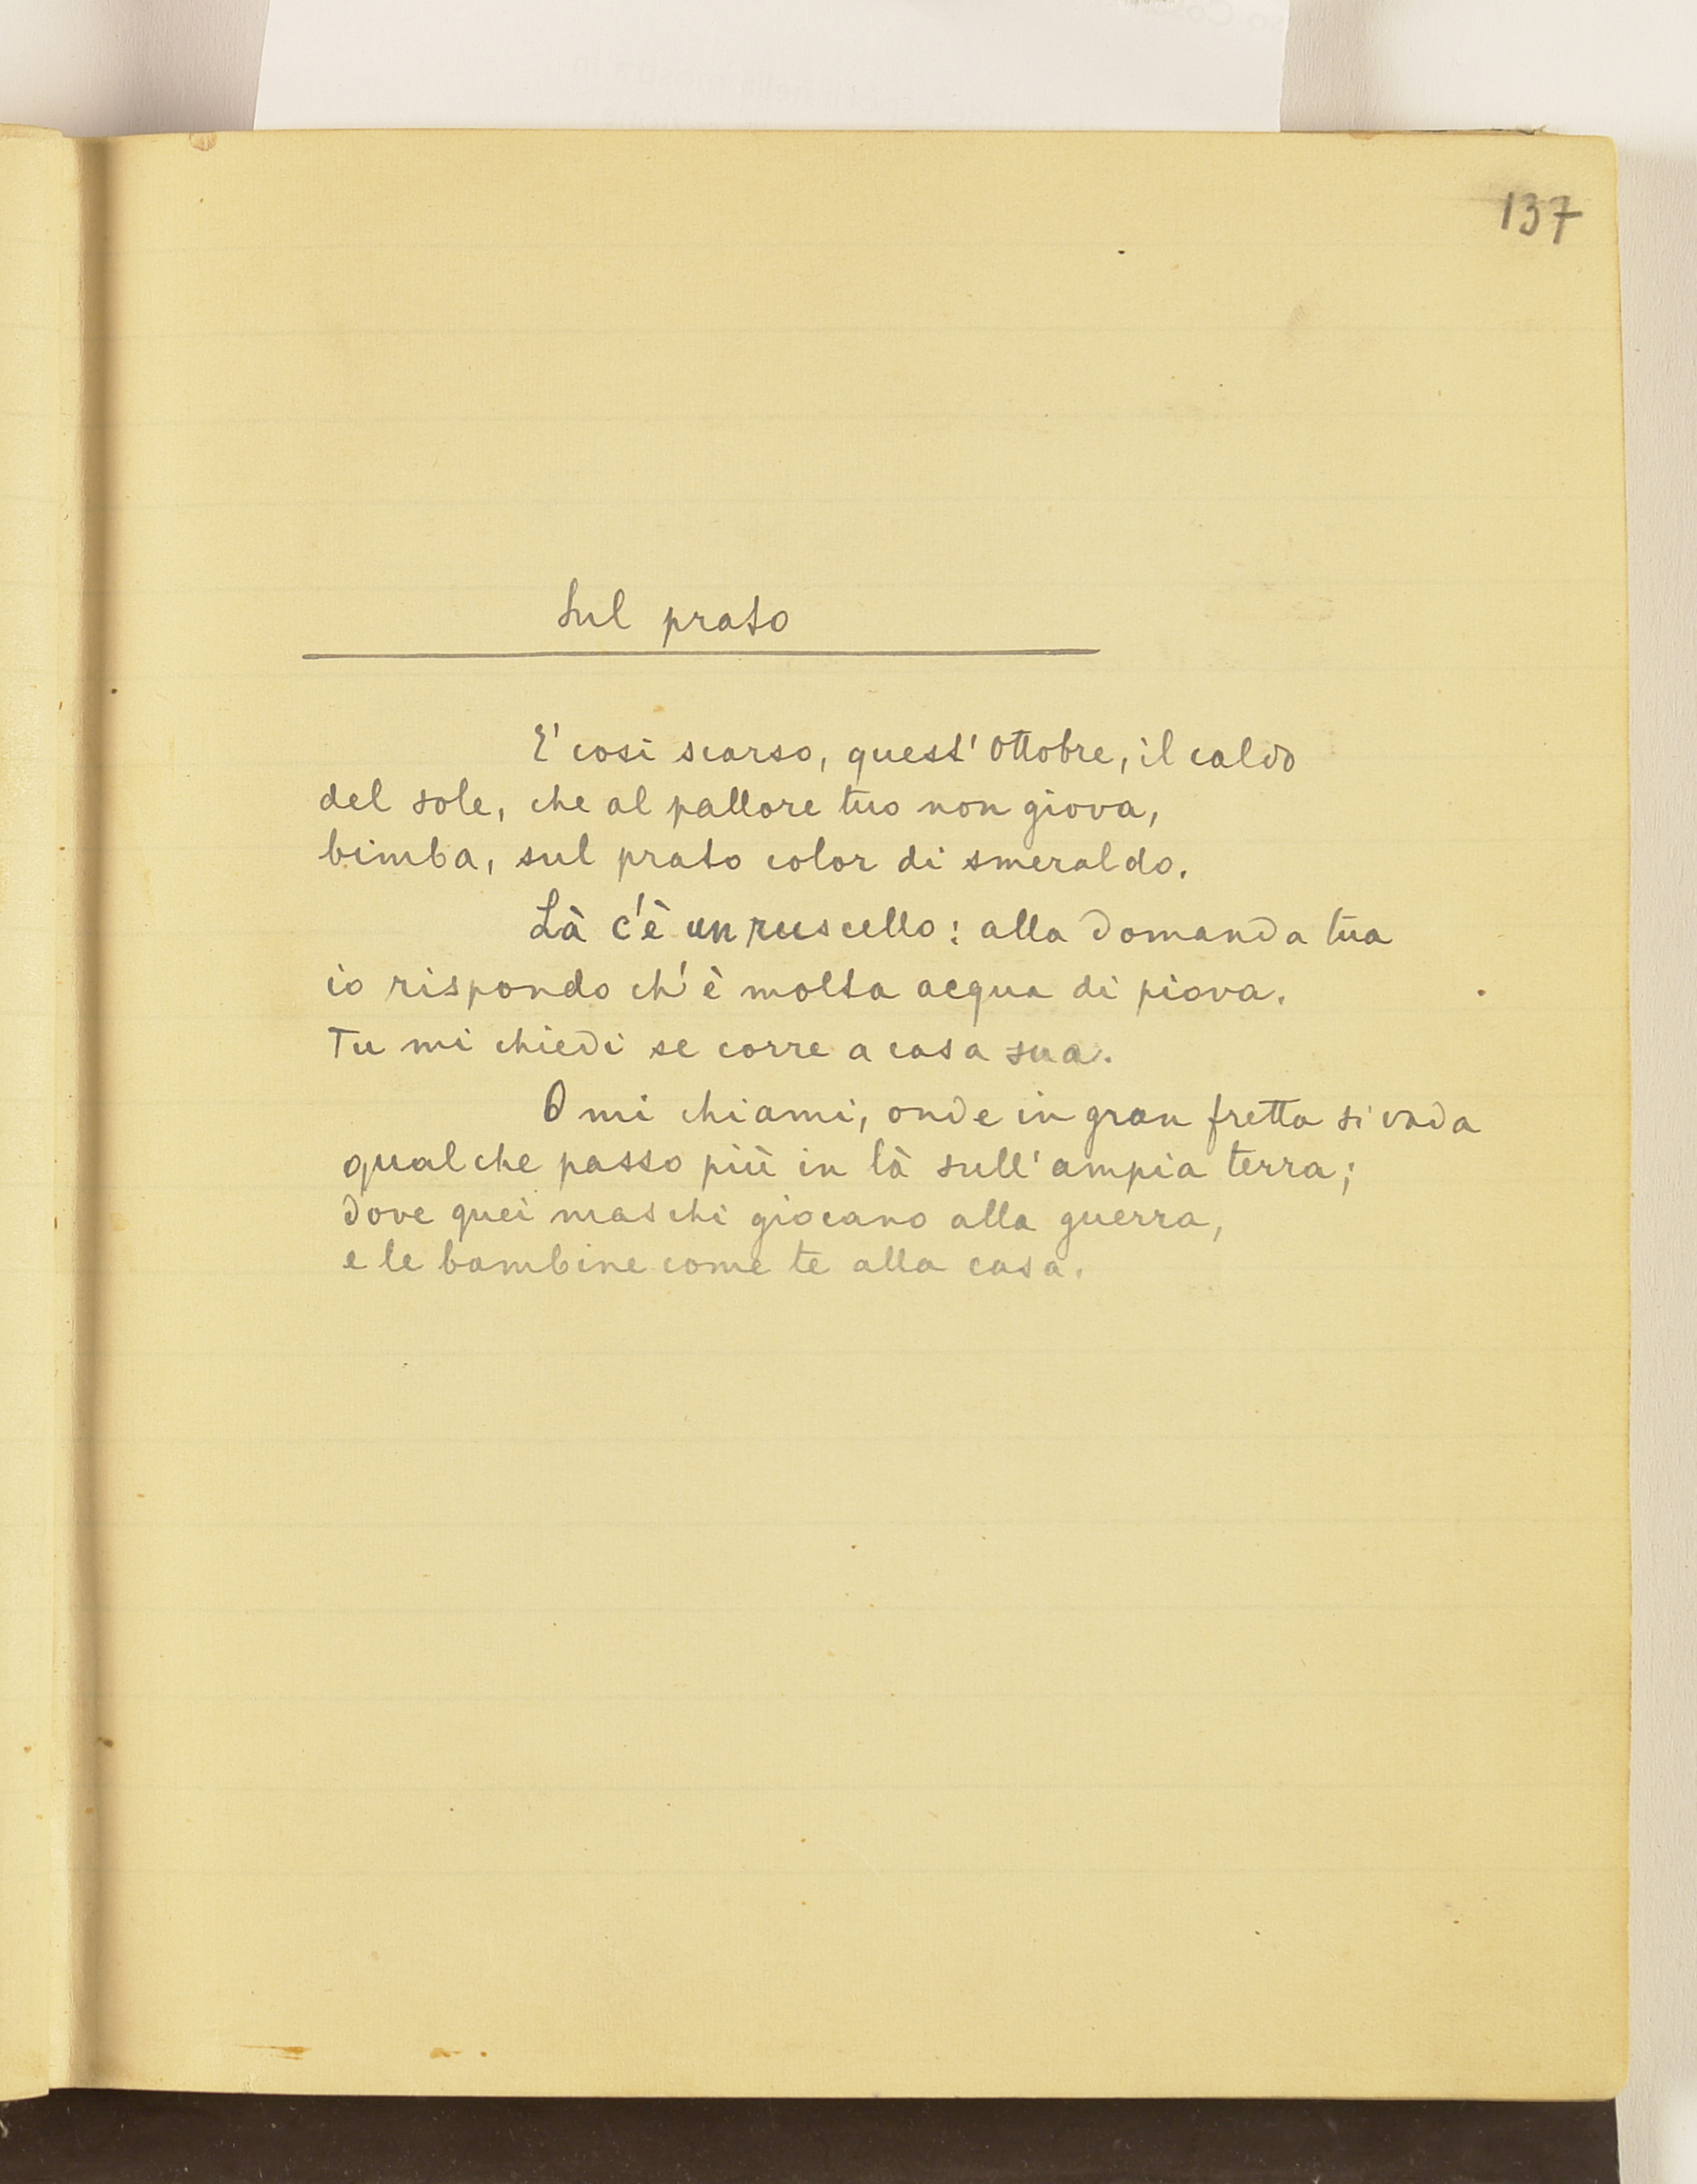 137
Sul prato
E' così scarso, quest' Ottobre, il caldo
del sole, che al pallore tuo non giova,
bimba, sul prato color di smeraldo.
Là c'è un ruscello: alla domanda tua
io rispondo ch'è molta acqua di piova.
Tu mi chiedi se corre a casa sua.
O mi chiami, onde in gran fretta si vada
qualche passo più in là sull'ampia terra;
dove quei maschi giocano alla guerra,
e le bambine come te alla casa.